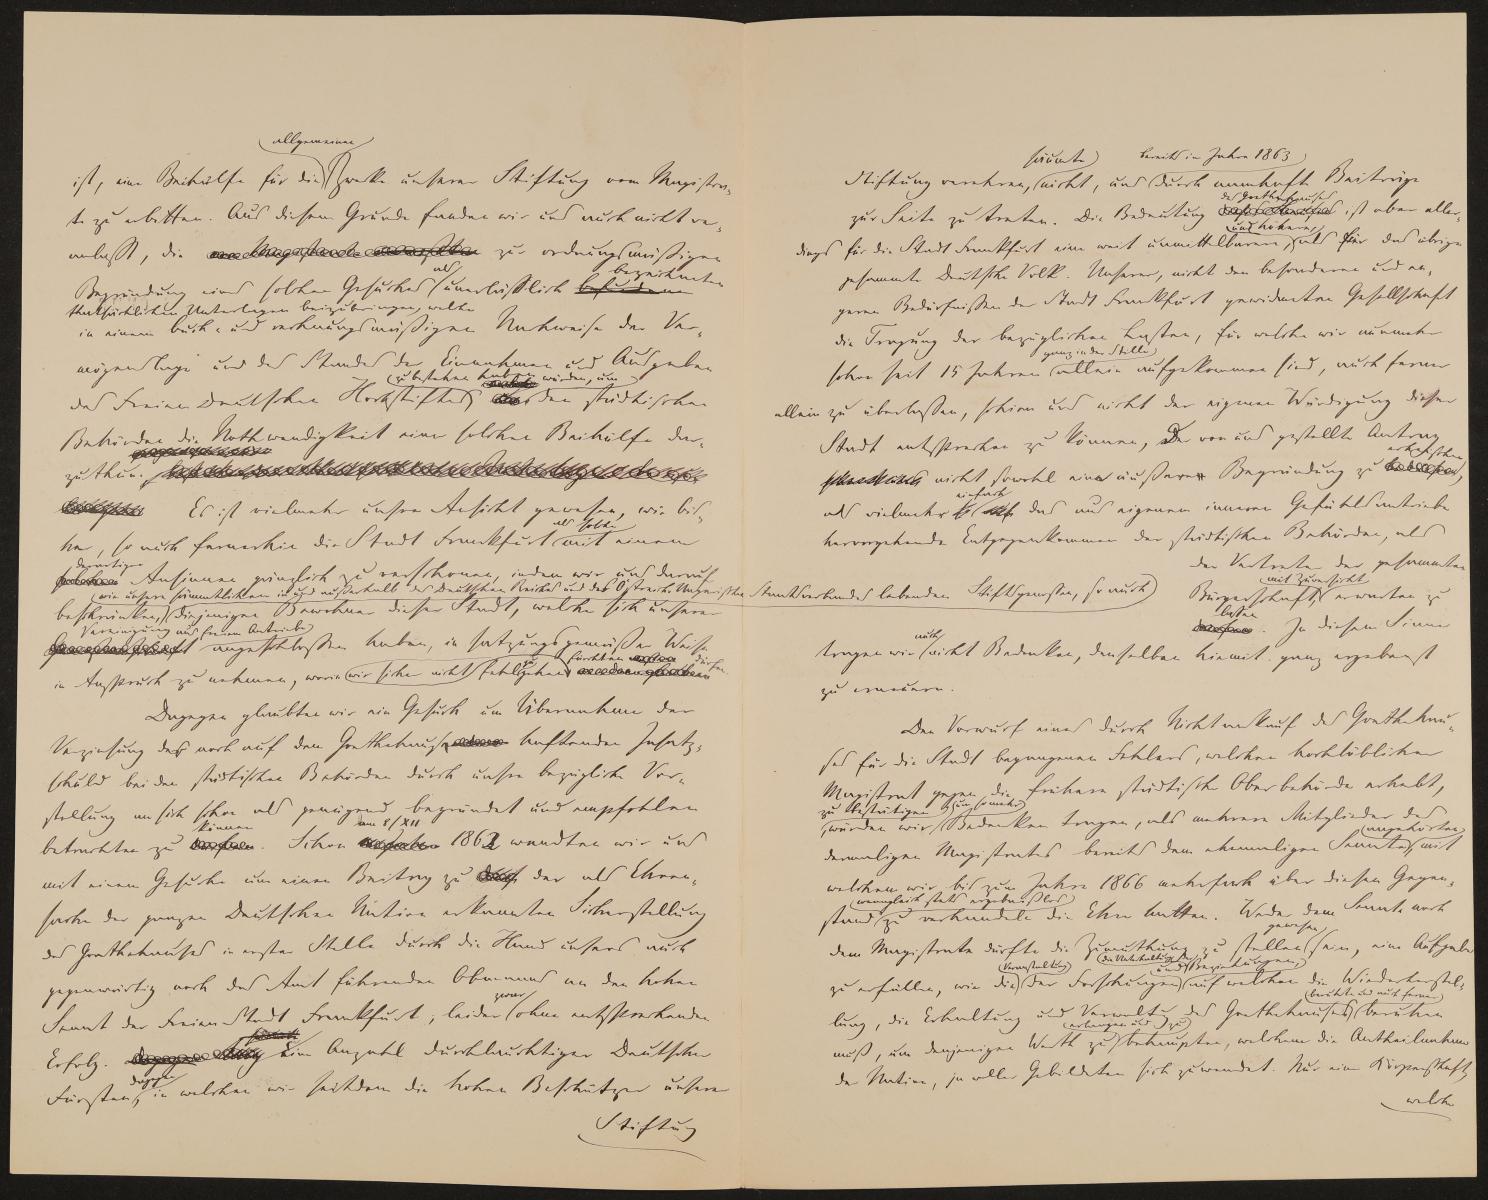 allgemeinen
ist, eine Beihülfe für die Zwecke unserer Stiftung vom Magistra-
te zu erbitten. Aus diesem Grunde fanden wir uns auch nicht ver-
anlasst, die zur ordnungsmäßigen
Begründung eines solchen Gesuches als unerlässlich bezeichneten
thatsächlichen Unterlagen beizubringen, welche
in einem buch- und rechnungsmäßigen Nachweise der Ver-
mögenslage und des Standes der Einnahmen und Ausgaben
zu bestehen haben würden, um
des Freien Deutschen Hochstiftes den städtischen
Behörden die Nothwendigkeit einer solchen Beihülfe dar-
zuthun.
Es ist vielmehr unsere Ansicht gewesen, wie bis-
her, so auch fernerhin die Stadt Frankfurt als solche mit einem
derartigen Ansinnen gänzlich zu verschonen, indem wir uns darauf
wie unsere sämmtlichen in und außerhalb des Deutschen Reiches und des Österreich. Ungarischen Staatsverbandes lebenden Stiftsgenossen, so auch
beschränken, diejenigen Bewohner dieser Stadt, welche sich unserer
Vereinigung aus freiem Antriebe
angeschlossen haben, in satzungsgemäßer Weise
in Anspruch zu nehmen, worin wir sicher nicht fehlzugehen fürchten dürfen.
Dagegen glaubten wir ein Gesuch um Übernahme der
Verzinsung der noch auf dem Goethehause haftenden Insatz-
schuld bei den städtischen Behörden durch unsere bezügliche Vor-
stellung an sich schon als genügend begründet und empfohlen
betrachten zu können. Schon am 8/XII 1862 wandten wir uns
mit einem Gesuche um einen Beitrag zu der als Ehren-
sache der ganzen Deutschen Nation erkannten Sicherstellung
des Goethehauses in erster Stelle durch die Hand unsers auch
gegenwärtig noch das Amt führenden Obmanns an den hohen
Senat der Freien Stadt Frankfurt, leider zwar ohne entsprechenden
Erfolg. Eine Anzahl durchlauchtigster Deutscher
Fürsten dagegen, in welchen wir seitdem die hohen Beschützer unserer
Stiftung
säumte bereits im Jahre 1863
Stiftung verehren, nicht, uns durch namhafte Beiträge
zur Seite zu treten. Die Bedeutung des Goethehauses ist aber aller-
dings für die Stadt Frankfurt eine weit unmittelbarere und höhere, als für das übrige
gesammte Deutsche Volk. Unserer, nicht den besonderen und en-
geren Bedürfnissen der Stadt Frankfurt gewidmeten Gesellschaft
die Tragung der bezüglichen Lasten, für welche wir nunmehr
schon seit 15 Jahren ganz an der Stelle allein aufgekommen sind, auch ferner
allein zu überlassen, schien uns nicht der eigenen Würdigung dieser
Stadt entsprechen zu können. Der von uns gestellte Antrag
nicht sowohl einer äußeren Begründung zu
als vielmehr einfach das aus eigenem inneren Gefühlsantriebe
hervorgehende Entgegenkommen der städtischen Behörden, als
der Vertreter der gesammten
Bürgerschaft, mit Zuversicht erwarten zu
lassen. In diesem Sinne
tragen wir auch nicht Bedenken, denselben hiermit ganz ergebenst
zu erneuern.
Den Vorwurf eines durch Nichtankauf des Goethehau-
ses für die Stadt begangenen Fehlers, welchen hochlöblicher
Magistrat gegen die frühere städtische Oberbehörde erhebt,
zu bestätigen würden wir um so mehr Bedenken tragen, als mehrere Mitglieder des
dermaligen Magistrates bereits dem ehemaligen Senate angehörten, mit
welchem wir bis zum Jahre 1866 mehrfach über diesen Gegen-
stand wenngleich stets ergebnißlos zu verhandeln die Ehre hatten. Weder dem Senate noch
dem Magistrate dürfte die Zumuthung zu stellen gewesen sein, eine Aufgabe
zu erfüllen, wie die Veranstaltung der Forschungen, die Unterhaltung der und Beziehungen, auf welchen die Wiederherstel-
lung, die Erhaltung und Verwaltung des Goethehauses beruhte und auch ferner beruhen
muß, um denjenigen Werth zu erlangen und zu behaupten, welchem die Antheilnahme
der Nation, ja aller Gebildeten sich zuwendet. Nur eine Körperschaft,
welche